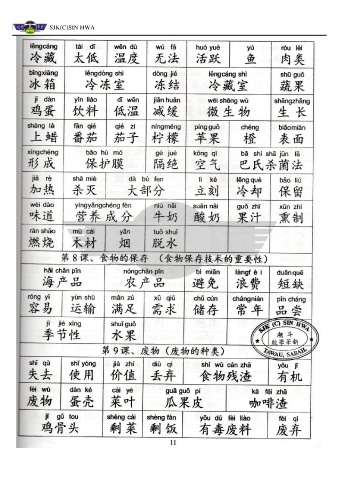 SJK(C)SIN HWA
lěngcáng tài dī wēn dù wú fǎ huó yuè yú ròu lèi
冷藏 太低 温度 无法 活跃 鱼 肉类
bīngxiāng lěngdòng shì dòng jié lěngcáng shì shū guǒ
冰箱 冷冻室 冻结 冷藏室 蔬果
jī dàn yǐn liào dī wēn jiǎn huǎn wēi shēng wù shēngzhǎng
鸡蛋 饮料 低温 减缓 微生物 生长
shàng là fān qié qié zi níngméng píng guǒ chéng biǎomiàn
上蜡 番茄 茄子 柠檬 苹果 橙 表面
xíngchéng bǎo hù mó gé jué kōng qì bā shì shā jūn fǎ
形成 保护膜 隔绝 空气 巴氏杀菌法
jiā rè shā miè dà bù fen lì kè lěng què bǎo liú
加热 杀灭 大部分 立刻 冷却 保留
wèi dào yíngyǎngchéng fèn niú nǎi suān nǎi guǒ zhī xūn zhì
味道 营养成分 牛奶 酸奶 果汁 熏制
rán shāo mù cái yān tuō shuǐ
燃烧 木材 烟 脱水
第8课、食物的保存 （食物保存技术的重要性）
hǎi chǎn pǐn nóngchǎn pǐn bì miǎn làng fèi duǎn quē
海产品 农产品 避免 浪费 短缺
róng yì yùn shū mǎn zú xū qiú chǔ cún chángnián pǐn cháng
容易 运输 满足 需求 储存 常年 品尝
jì jié xìng shuǐ guǒ
季节性 水果
SJK (C) SIN HWA
TAWAU, SABAH.
第9课、废物（废物的种类）
shī qù shǐ yòng jià zhí diū qì shí wù cán zhā yǒu jī
失去 使用 价值 丢弃 食物残渣 有机
fèi wù dàn ké cài yè guā guǒ pí kā fēi zhā
废物 蛋壳 菜叶 瓜果皮 咖啡渣
jī gǔ tou shèng cài shèng fàn yǒu dú fèi liào fèi qì
鸡骨头 剩菜 剩饭 有毒废料 废弃
11